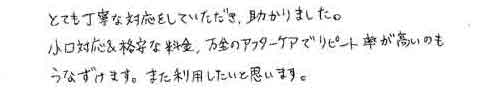 とても丁寧な対応をしていただき、助かりました。
小口対応&格安な料金、万全のアフターケアでリピート率が高いのも
うなずけます。また利用したいと思います。